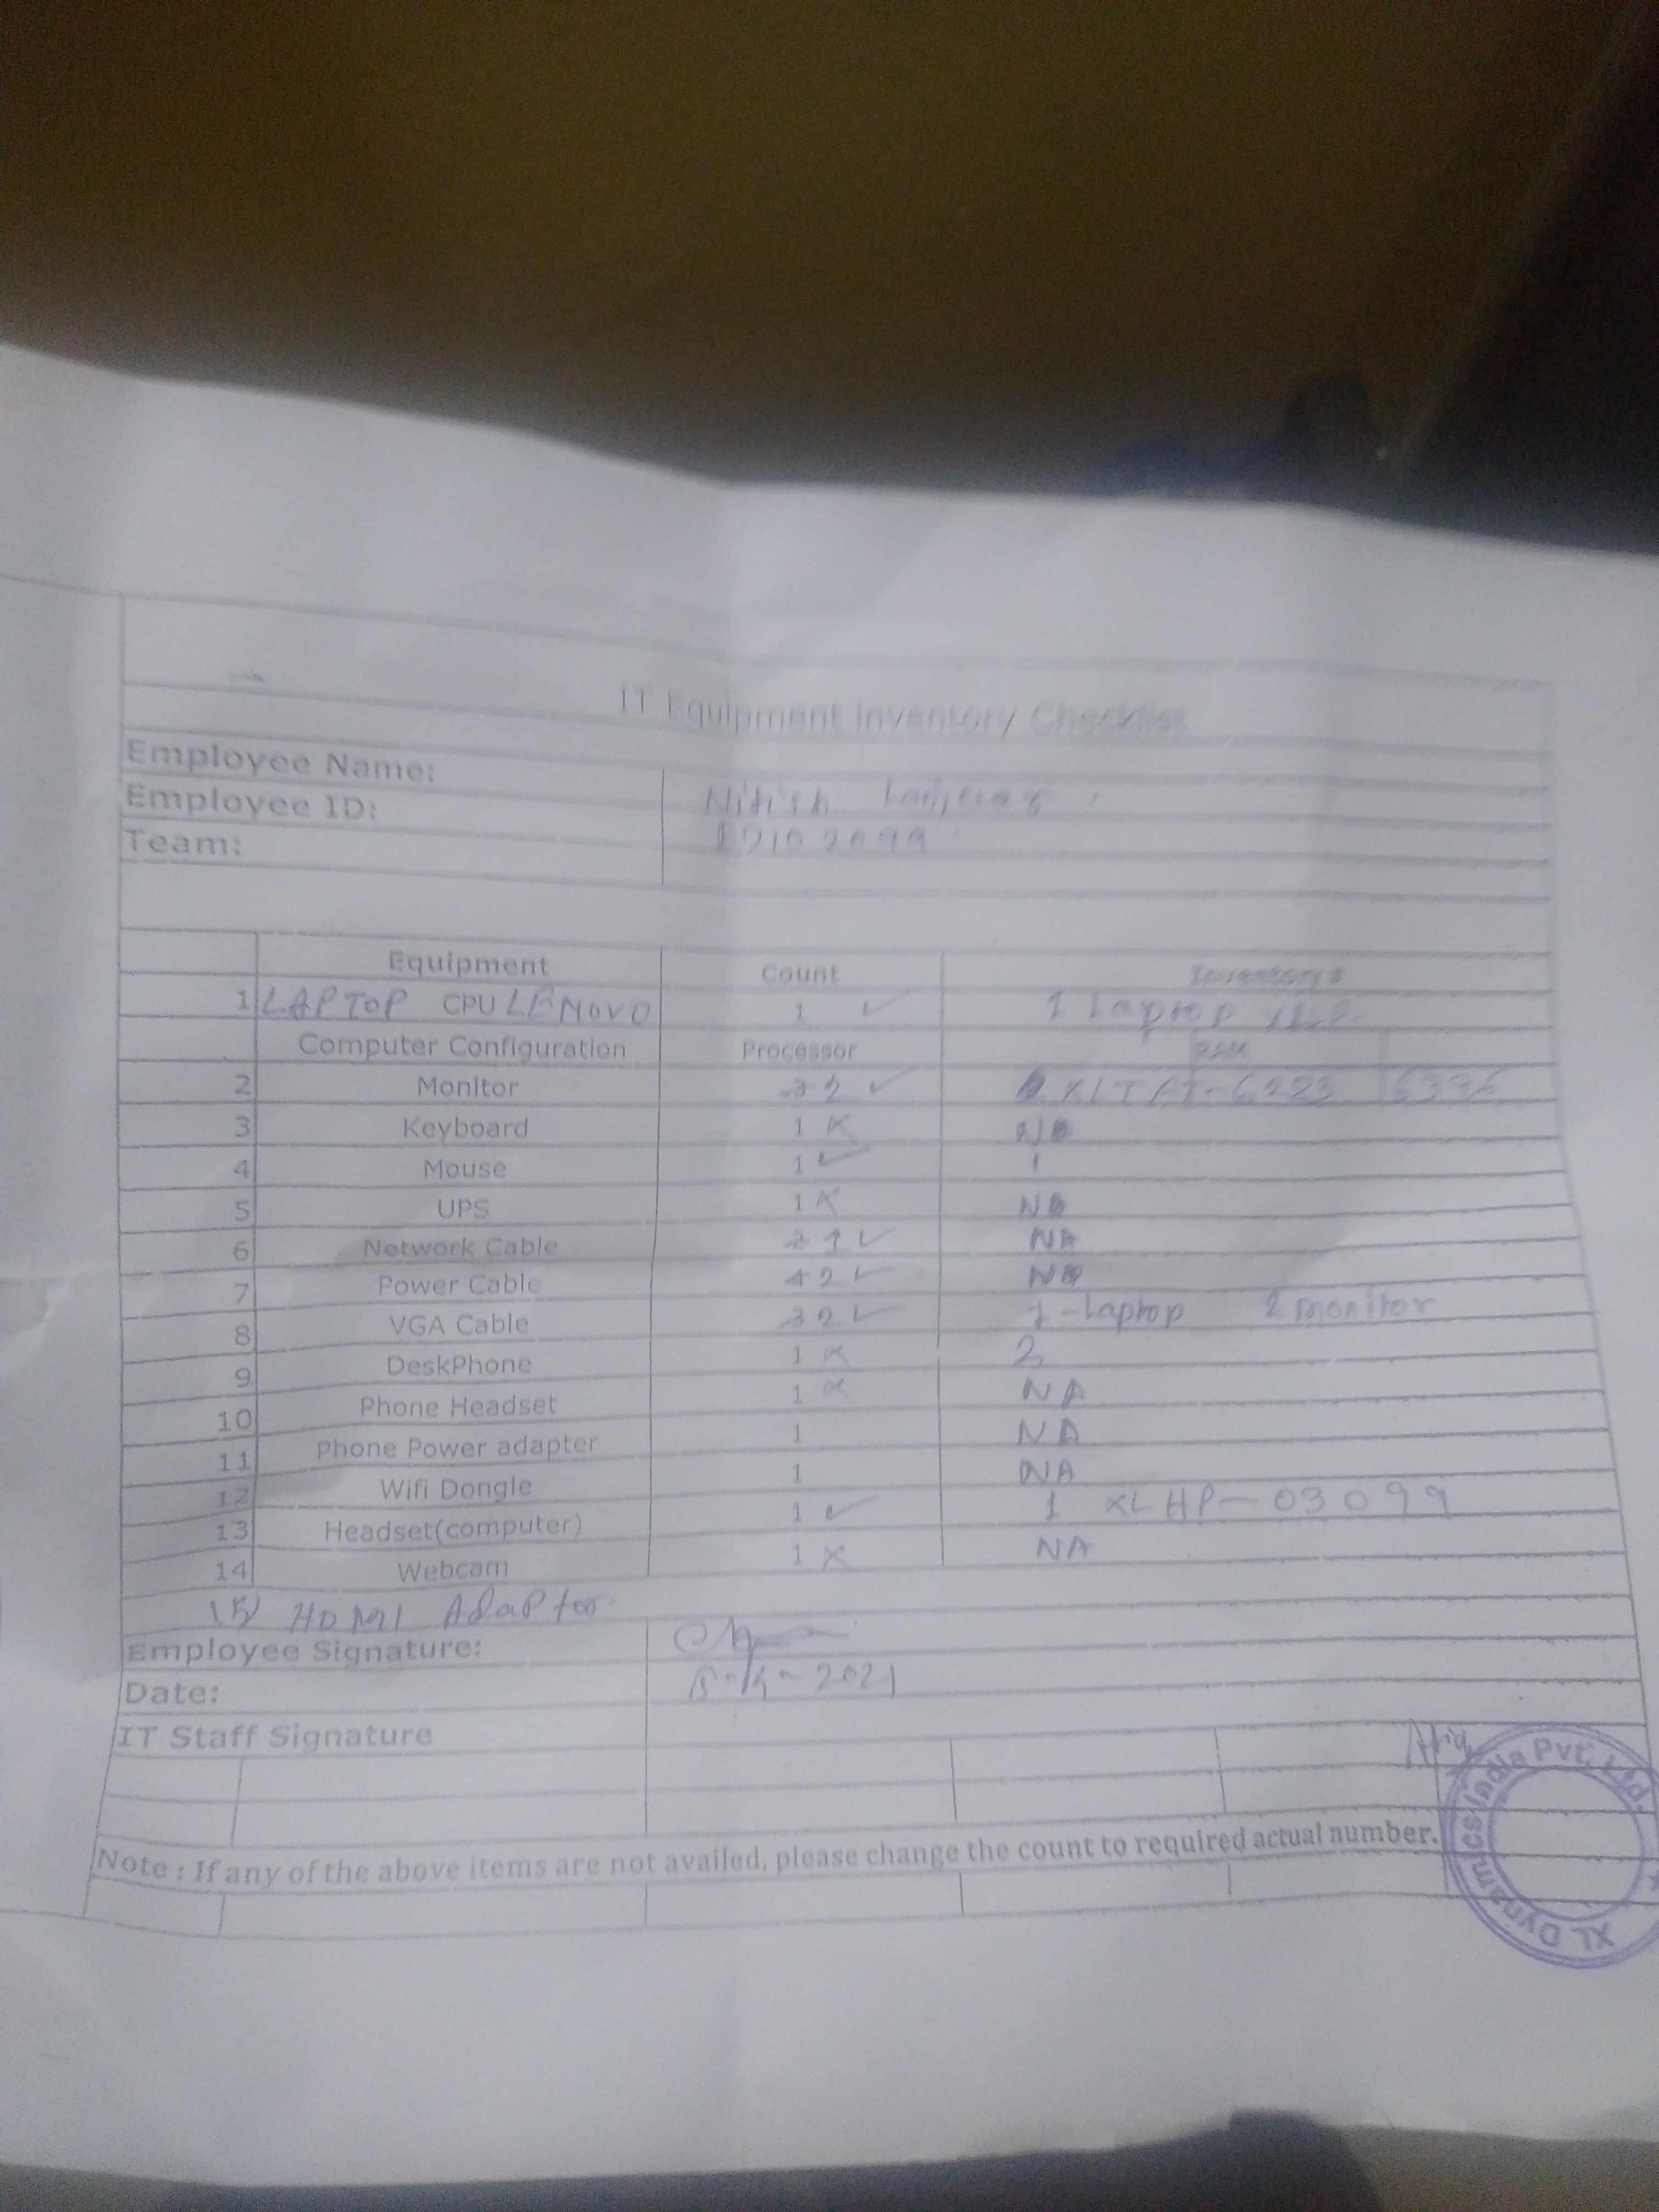 IT Equipment Inventory Checklist
Employee Name:
Nitish
Employee ID:
Team:
Equipment Count Inventory #
1 LAPTOP CPU LENOVO 1 ✓ 1 Laptop
Computer Configuration Processor RAM
2 Monitor 2 ✓ XLTFT-6223 6396
3 Keyboard 1 X NA
4 Mouse 1 ✓ 1
5 UPS 1 X NA
6 Network Cable 2 1 ✓ NA
7 Power Cable 4 2 ✓ NA
8 VGA Cable 3 2 ✓ 1-Laptop 2 monitor
9 DeskPhone 1 X 2
10 Phone Headset 1 X NA
11 Phone Power adapter 1 NA
12 Wifi Dongle 1 NA
13 Headset(computer) 1 ✓ 1 XLHP-03099
14 Webcam 1 X NA
15) HDMI Adaptor
Employee Signature:
Date: 2021
IT Staff Signature
Note : If any of the above items are not availed, please change the count to required actual number.
XL Dynamics India Pvt. Ltd.